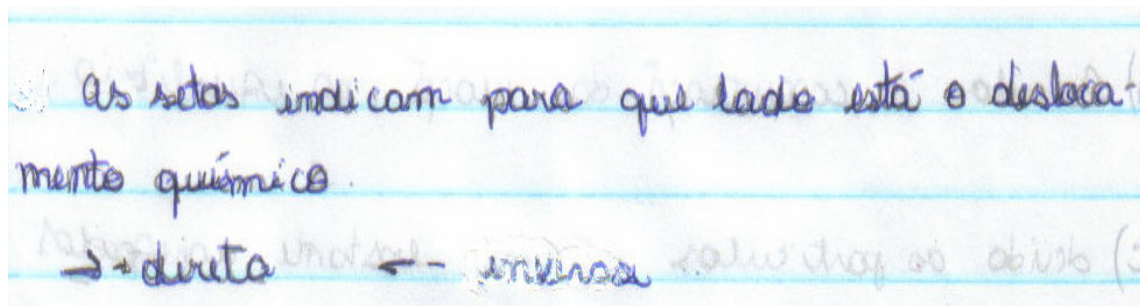 As setas indicam para que lado está o desloca-
mento químico.
→ direta ← inversa